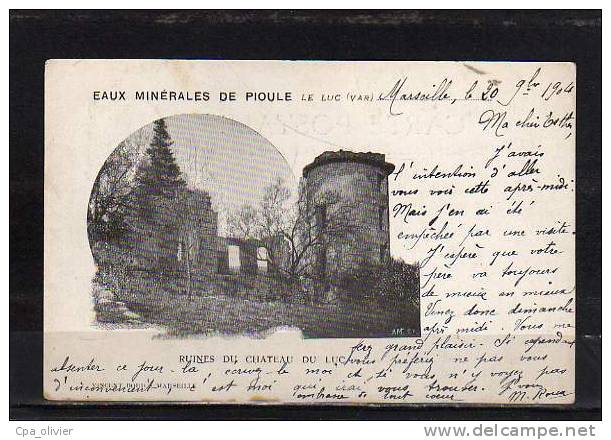 EAUX MINÉRALES DE PIOULE LE LUC (VAR)
Marseille, le 20 9bre 1904
Ma chère Esther,
J'avais
l'intention d'aller
vous voir cette après-midi.
Mais j'en ai été
empêchée par une visite.
J'espère que votre
père va toujours
de mieux en mieux
Venez donc dimanche
après midi. Vous me
ferez grand plaisir. Si cependant
RUINES DU CHATEAU DU LUC
vous préférez ne pas vous
absenter ce jour-là écrivez-le moi et si vous n'y voyez pas
d'inconvénient c'est moi qui irai vous trouver. Je vous
VINCENT MARSEILLE
embrasse de tout coeur
M. Roux
Cpa_olivier
http://www.delcampe.net